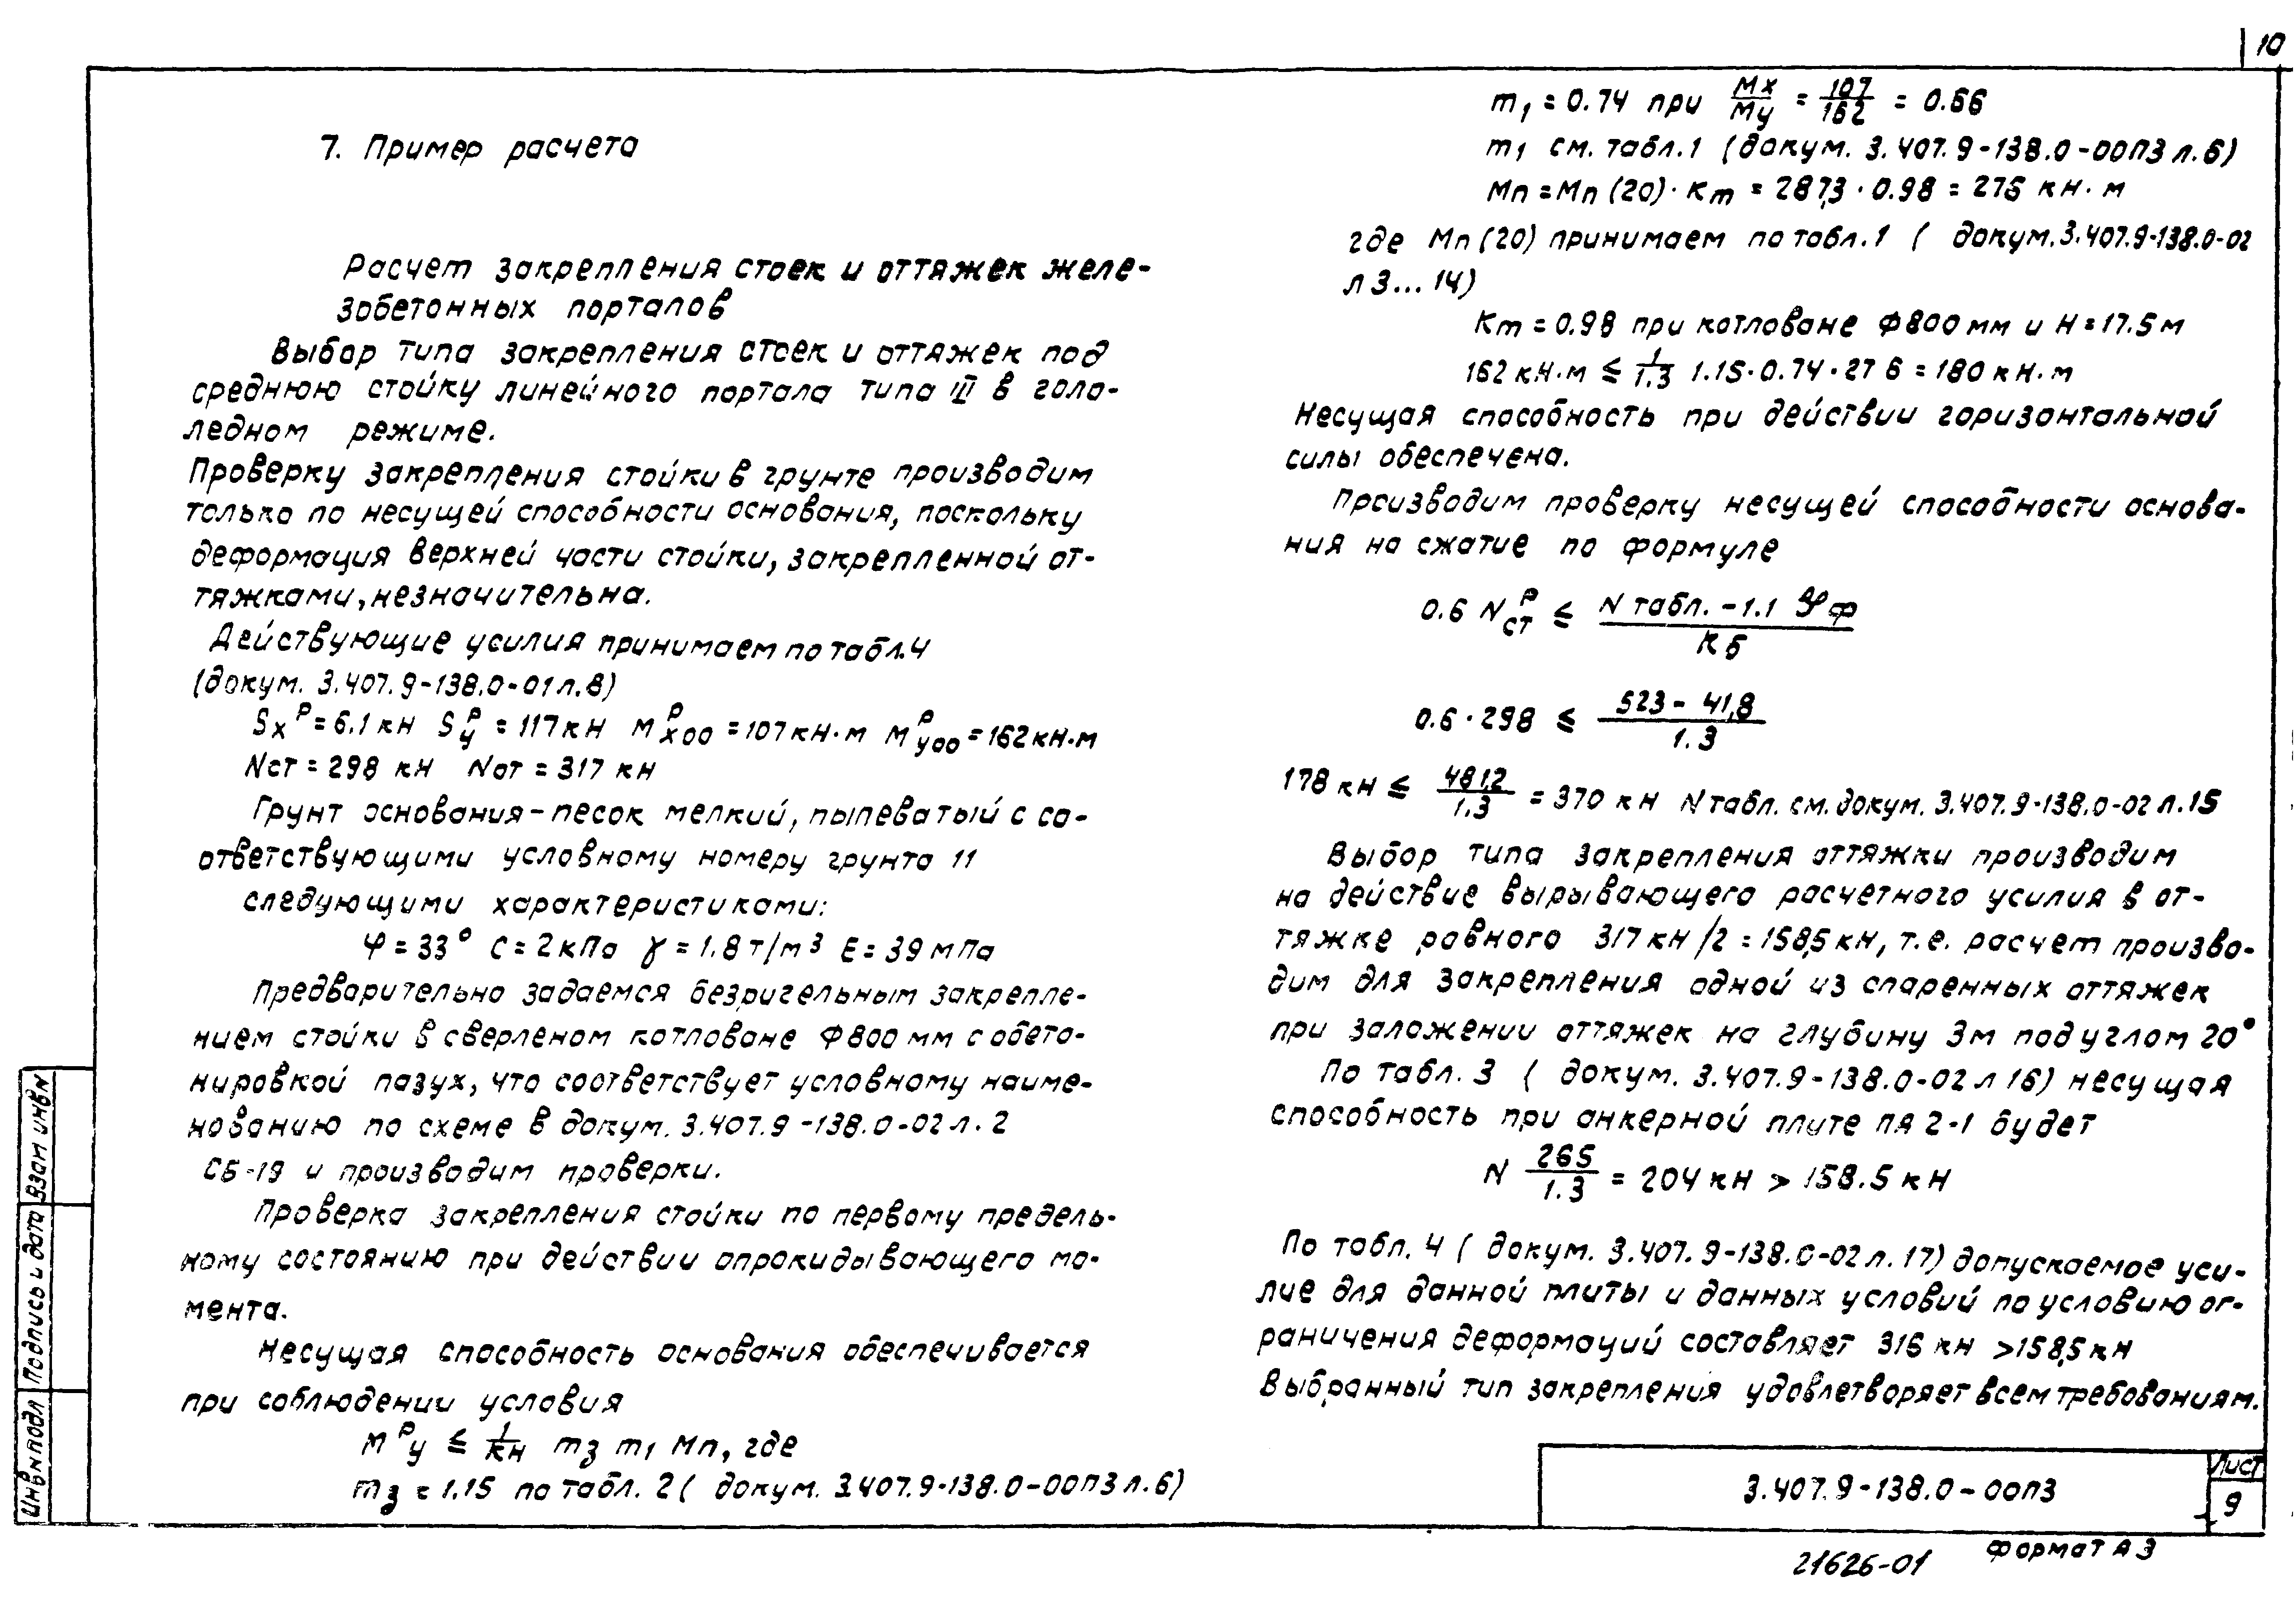 10
7. Пример расчета
Расчет закрепления стоек и оттяжек желе-
зобетонных порталов
Выбор типа закрепления стоек и оттяжек под
среднюю стойку линейного портала типа III в голо-
ледном режиме.
Проверку закрепления стойки в грунте производим
только по несущей способности основания, поскольку
деформация верхней части стойки, закрепленной от-
тяжками, незначительна.
Действующие усилия принимаем по табл.4
(докум. 3.407.9-138.0-01 л.8)
Sx^р = 6.1 кН Sу^р = 117 кН М^р х00 = 107 кН·м М^р у00 = 162 кН·м
Nст = 298 кН Nот = 317 кН
Грунт основания - песок мелкий, пылеватый с со-
ответствующими условному номеру грунта 11
следующими характеристиками:
φ = 33° С = 2 кПа γ = 1.8 т/м³ Е = 39 мПа
Предварительно задаемся безригельным закрепле-
нием стойки в сверленом котловане Ф800 мм с обето-
нировкой пазух, что соответствует условному наиме-
нованию по схеме в докум. 3.407.9-138.0-02 л.2
СБ-19 и производим проверки.
Проверка закрепления стойки по первому предель-
ному состоянию при действии опрокидывающего мо-
мента.
Несущая способность основания обеспечивается
при соблюдении условия
М^р у ≤ 1/кн mз m1 Мп, где
mз = 1.15 по табл. 2 ( докум. 3.407.9-138.0-00ПЗ л.6)
m1 = 0.74 при Мх/Му = 107/162 = 0.66
m1 см. табл.1 (докум. 3.407.9-138.0-00ПЗ л.6)
Мп = Мп (20)· Кт = 287,3 · 0.98 = 276 кН·м
где Мп (20) принимаем по табл.1 ( докум.3.407.9-138.0-02
л 3...14)
Кт = 0.98 при котловане Ф800 мм и Н = 17.5 м
162 кН·м ≤ 1/1.3 1.15·0.74·276 = 180 кН·м
Несущая способность при действии горизонтальной
силы обеспечена.
Производим проверку несущей способности основа-
ния на сжатие по формуле
0.6 N^р ст ≤ (N табл. - 1.1 φф)/Кб
0.6 · 298 ≤ (523 - 41,8)/1.3
178 кН ≤ 481,2/1.3 = 370 кН Nтабл. см. докум. 3.407.9-138.0-02 л.15
Выбор типа закрепления оттяжки производим
на действие вырывающего расчетного усилия в от-
тяжке равного 317 кН/2 = 158,5 кН, т.е. расчет произво-
дим для закрепления одной из спаренных оттяжек
при заложении оттяжек на глубину 3м под углом 20°
По табл. 3 ( докум. 3.407.9-138.0-02 л 16) несущая
способность при анкерной плите ПА 2-1 будет
N 265/1.3 = 204 кН > 158.5 кН
По табл. 4 ( докум. 3.407.9-138.0-02 л. 17) допускаемое уси-
лие для данной плиты и данных условий по условию ог-
раничения деформаций составляет 316 кН >158,5 кН
Выбранный тип закрепления удовлетворяет всем требованиям.
Взам инв№
Подпись и дата
Инв№подл
3.407.9-138.0-00ПЗ
Лист
9
21626-01
Формат А3